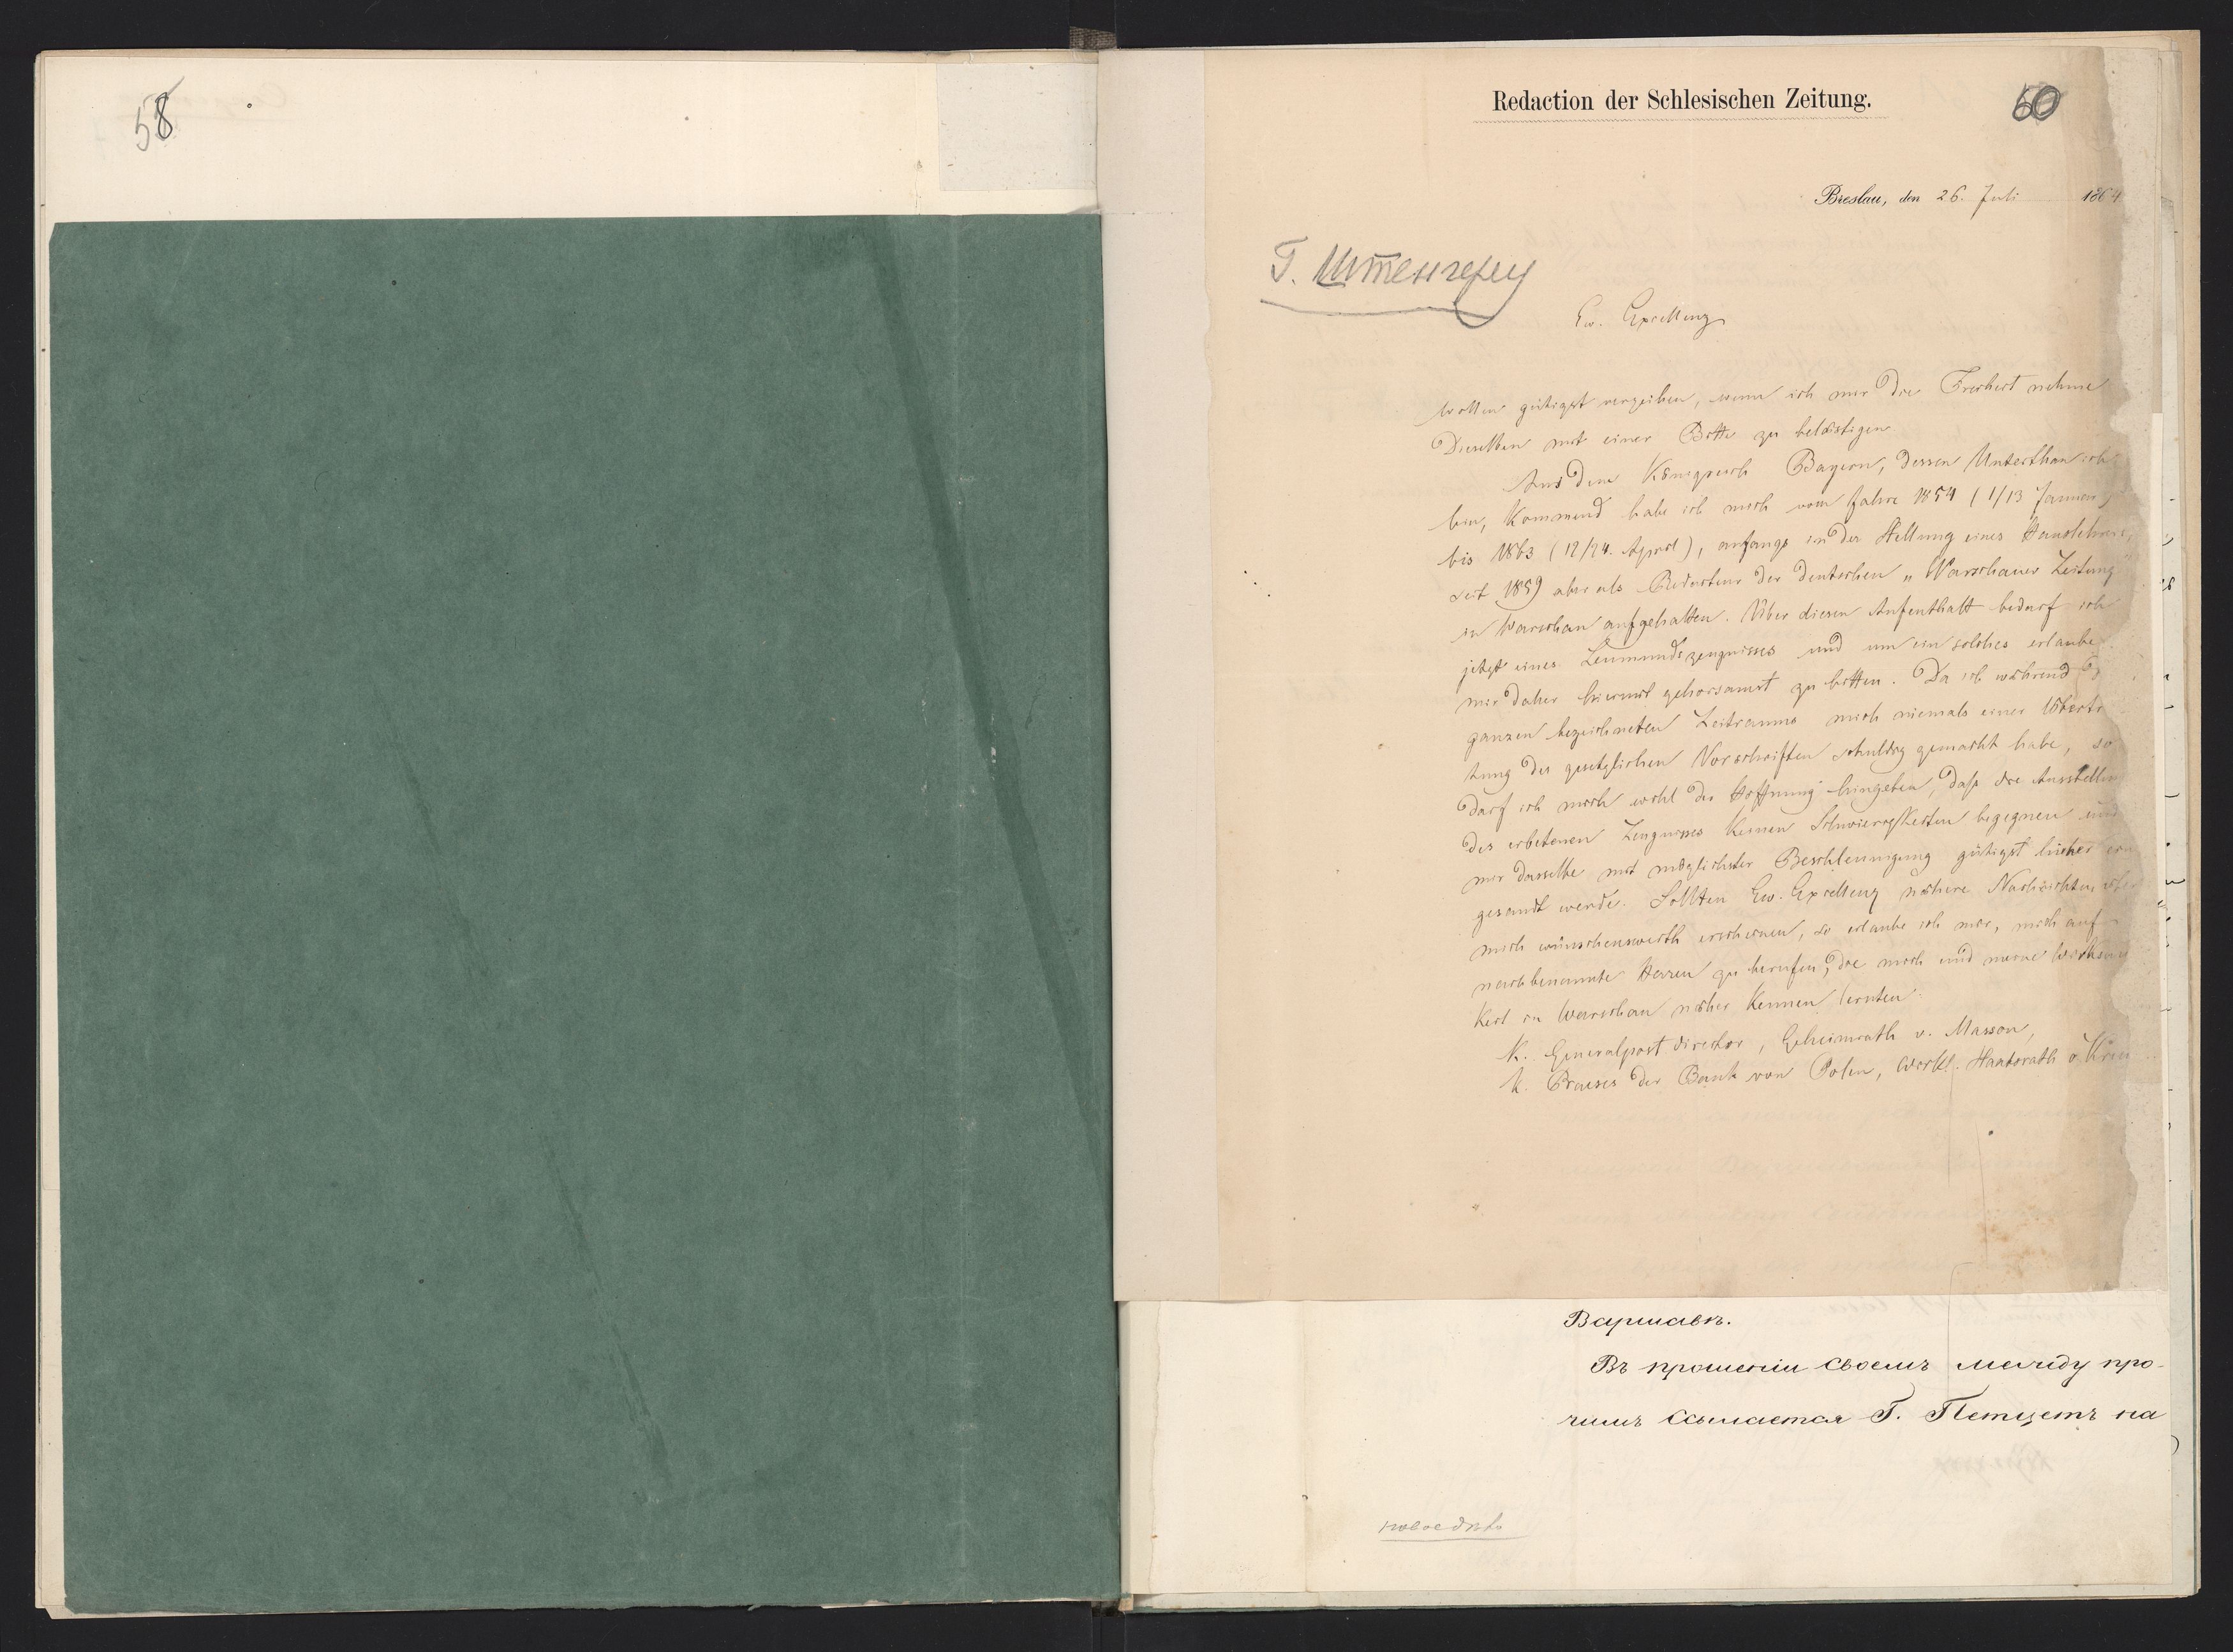 58
Redaction der Schlesischen Zeitung.
60
Breslau, den 26. Juli 1864
Г. Штенгеру
Ew. Excellenz
wollen gütigst verzeihen, wenn ich mir die Freiheit nehme
Dieselben mit einer Bitte zu belästigen
Aus dem Königreich Bayern, dessen Unterthan ich
bin, kommend habe ich mich vom Jahre 1854 (1/13 Januar)
bis 1863 (12/24. April), anfangs in der Stellung eines Hauslehrers,
seit 1859 aber als Redacteur der deutschen „Warschauer Zeitung"
in Warschau aufgehalten. Über diesen Aufenthalt bedarf ich
jetzt eines Leumundszeugnisses und um ein solches erlaube
mir daher hiermit gehorsamst zu bitten. Da ich während
ganzen bezeichneten Zeitraums mich niemals einer Übertr
tung der gesetzlichen Vorschriften schuldig gemacht habe, so
darf ich mich wohl der Hoffnung hingeben, daß die Ausstellun
des erbetenen Zeugnisses keinen Schwierigkeiten begegnen und
mir dasselbe mit möglichster Beschleunigung gütigst hieher
gesandt werde. Sollten Ew. Excellenz nähere Nachrichten über
mich wünschenswerth erscheinen, so erlaube ich mir, mich auf
nachbenannte Herren zu berufen, die mich und meine Wirksam
keit in Warschau näher kennen lernten.
K. Generalpostdirector, Geheimrath v. Masson,
K. Praeses der Bank von Polen, Wirkl. Staatsrath v.
Варшавѣ.
Въ прошеніи своемъ между про-
чимъ ссылается Г. Петцетъ на